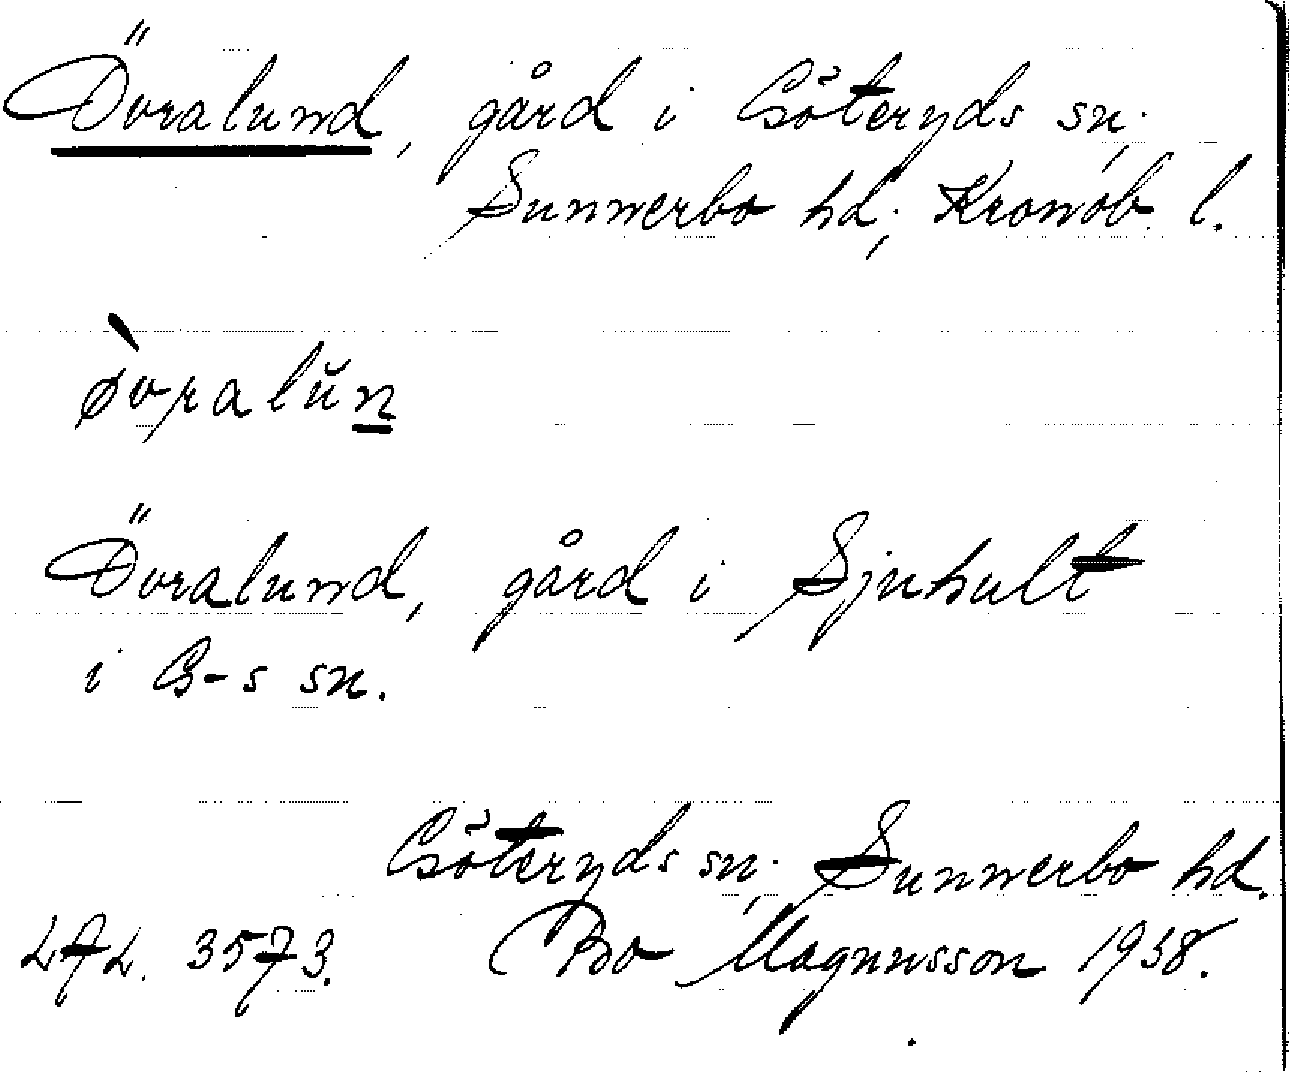 Övralund, gård i Göteryds sn.,
Sunnerbo hd., Kronob. l.
òvralŭn
Övralund, gård i Sjuhult
i G-s sn.
Göteryds sn., Sunnerbo hd.
LAL. 3573. Bo Magnusson 1938.